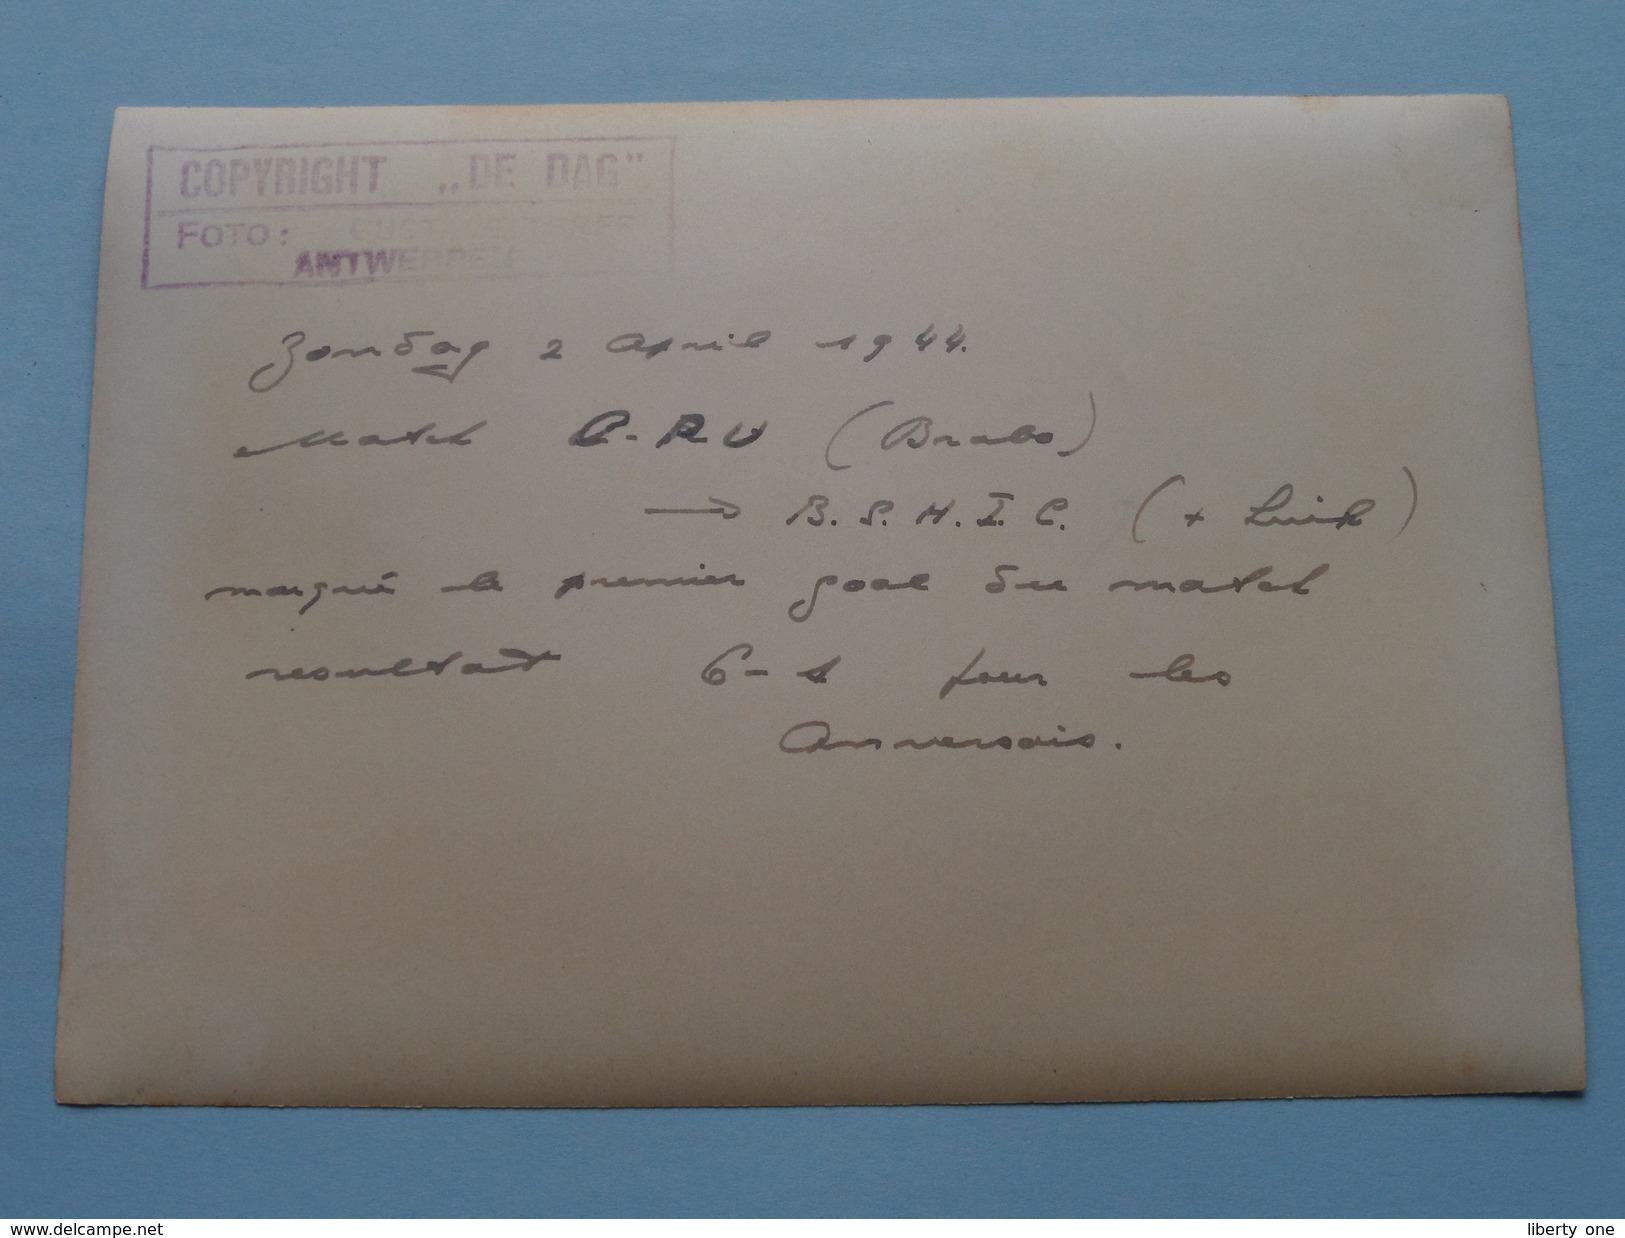 COPYRIGHT „DE DAG"
FOTO:
ANTWERPEN
Zondag 2 april 1944.
Match C-RU (Brabo)
→ B.S.H.I.C. (+ Luik)
marqué le premier goal du match
resultat 6-1 pour les
Anversois.
www.delcampe.net
liberty_one